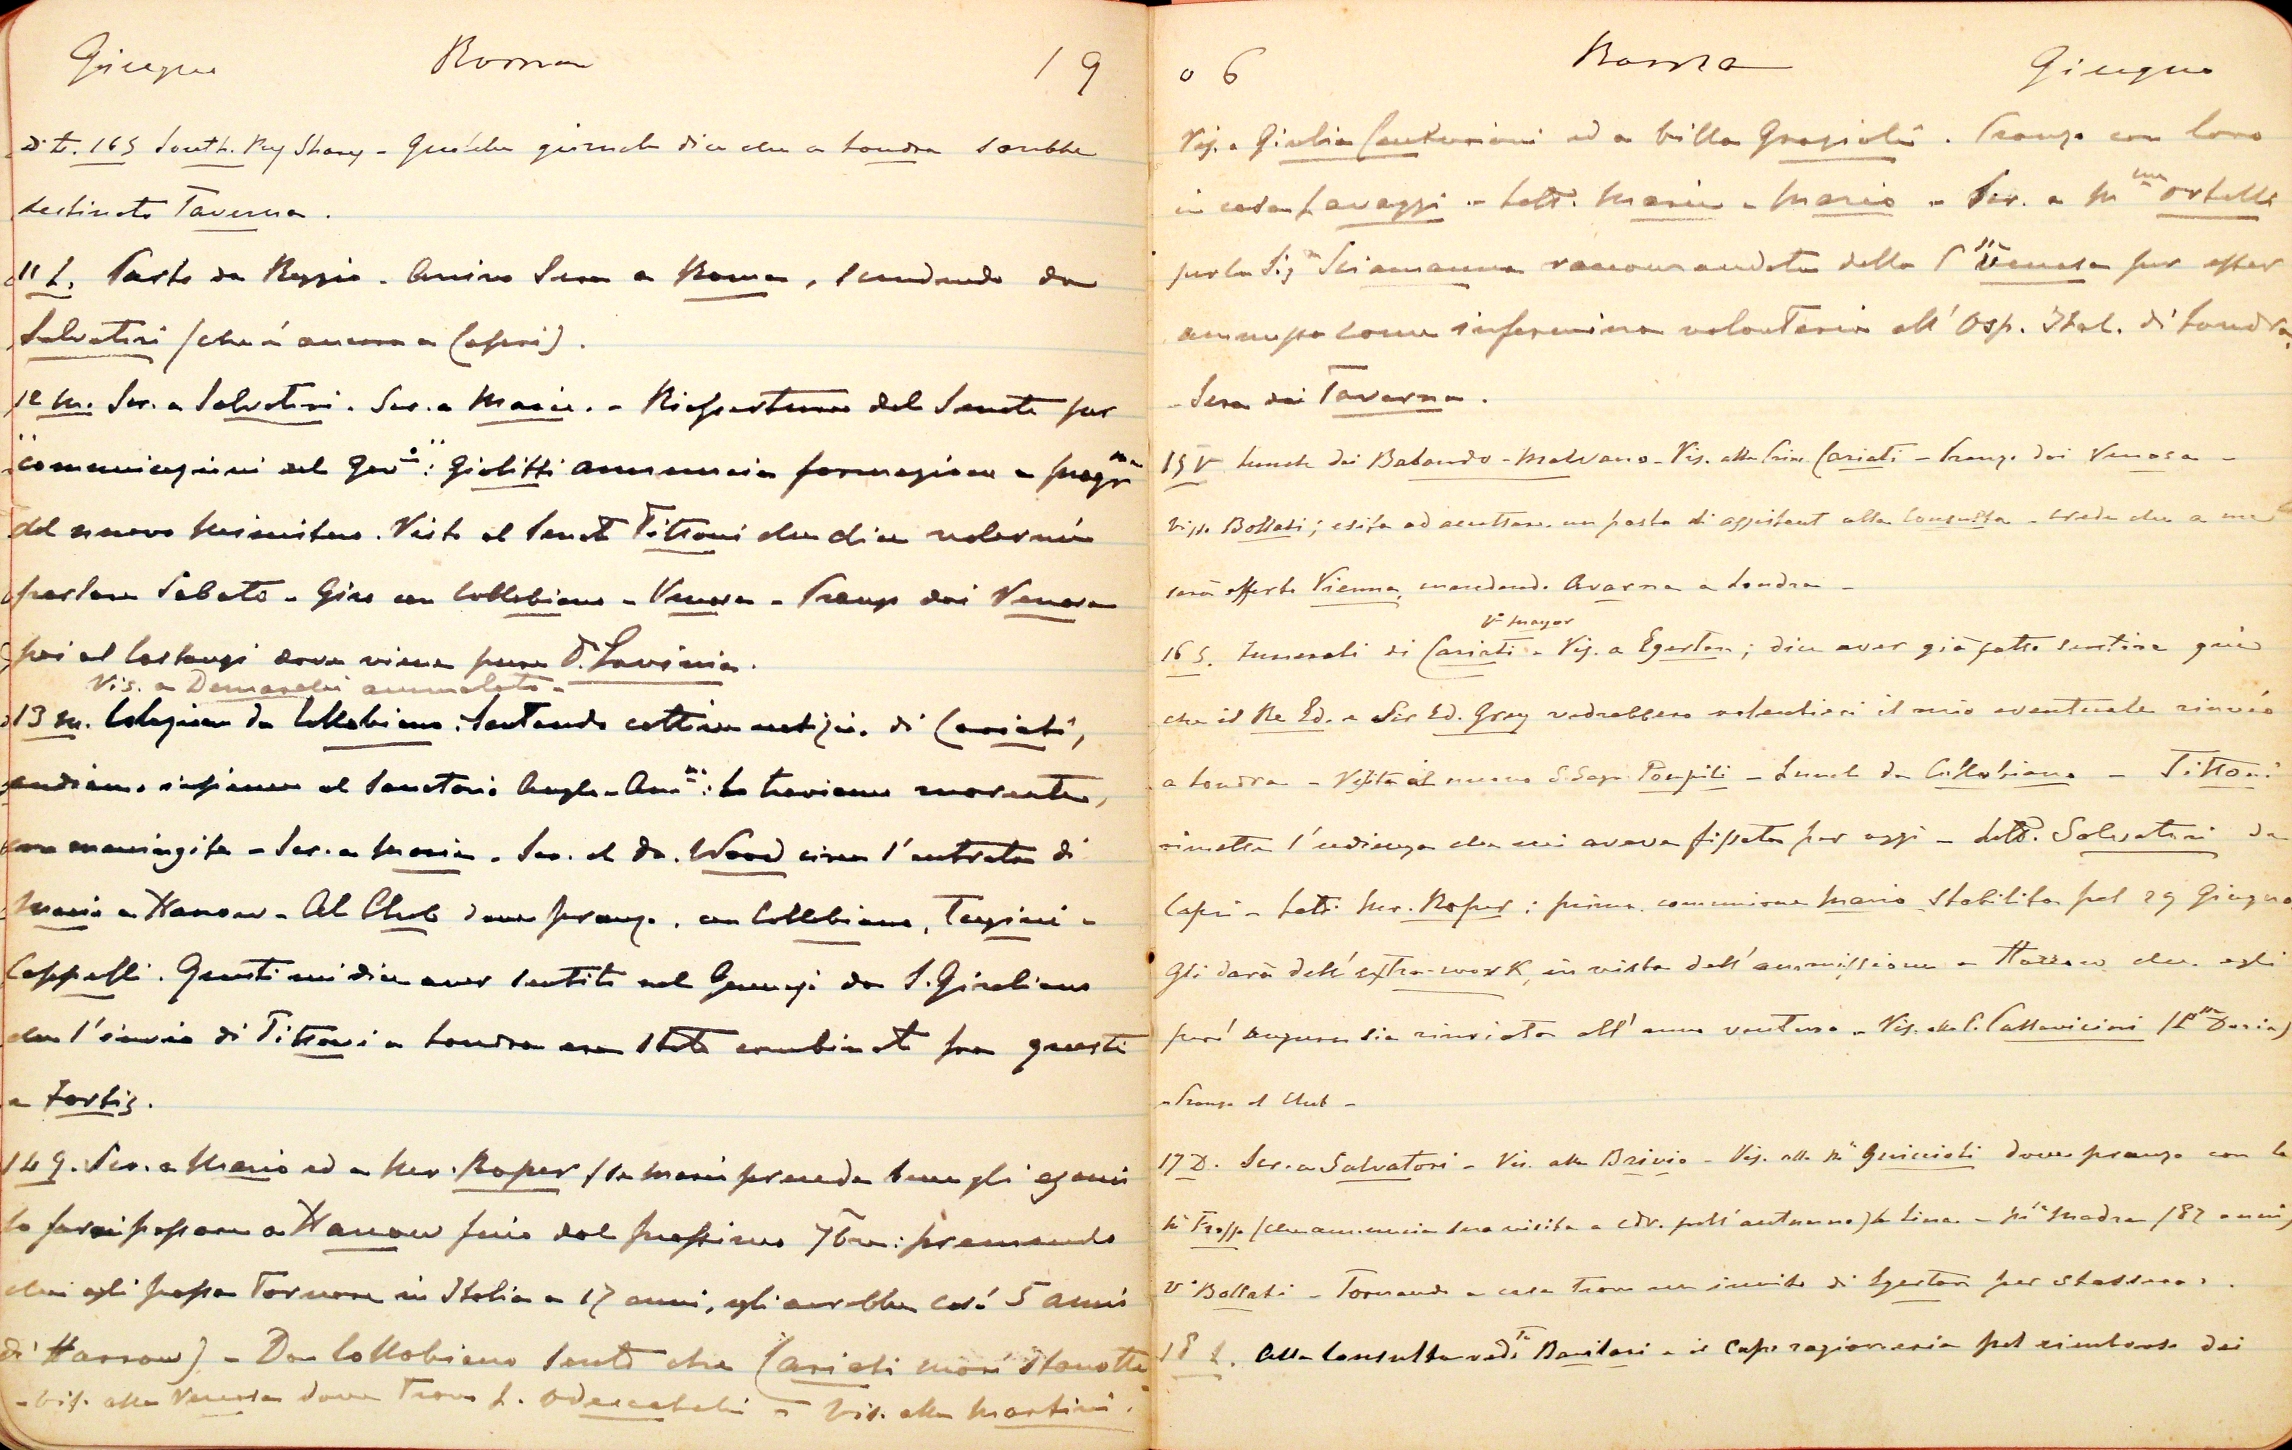 Giugno Roma 19
di t. 165 South. Ky Shary - Qualche giornale dice che a Londra sarebbe
destinato Taverna.
11 L. Parto da Reggio. Arrivo Sera a Roma, scendendo da
Salvatori (che è ancora a Capri).
12 M. Scr. a Salvatori. Scr. a Marie. - Riapertura del Senato per
"comunicazioni del Govo": Giolitti annuncia formazione e progrma
del nuovo Ministero. Visto al Senato Tittoni che dice volermi
parlare Sabato - Giro con Collobiano - Venosa - Pranzo dai Venosa
poi al Costanzi dove viene pure D. Lavinia.
Vis. a Demarchi ammalato -
13 M. Colazione da Collobiano: Sentendo cattive notizie di Cariati,
andiamo insieme al Sanatorio Anglo-Amno: lo troviamo morente,
meningite - Scr. a Marie. Scr. al da. Wood circa l'entrata di
Mario a Harrow - Al Club dove pranzo. con Collobiano, Tugini e
Cappelli. Questi mi dice aver sentito nel Gennajo da S. Giuliano
che l'invio di Tittoni a Londra era stato combinato fra questi
e Fortis.
14 G. Scr. a Mario ed a Mr. Roper (se Mario prende bene gli esami
lo farei passare a Harrow fino dal prossimo 7bre: premendo
che egli possa tornare in Italia a 17 anni, egli avrebbe così 5 anni
di Harrow) - Da Collobiano sento che Cariati morì stanotte
- Vis. alla Venosa dove trovo L. Odescalchi - Vis. alla Martini.
06 Roma Giugno
Vis. a Giulia Centurioni ed a villa Grazioli. Pranzo con loro
in casa Lavaggi - Lett. Marie e Mario - Scr. a Mme Ortelli
per la Siga Sciamanna raccomandata dalla Pssa Venosa per esser
ammessa come infermiera volontaria all'Osp. Ital. di Londra.
- Sera dai Taverna.
15 V Lunch dai Balando - Malvano - Vis. alla Prin. Cariati - Pranzo dai Venosa -
Visto Bollati; esita ad accettare un posto di assistent alla Consulta - crede che a me
sarà offerto Vienna, mandando Avarna a Londra -
Vo Mayor
16 S. Funerali di Cariati - Vis. a Egerton; dice aver già fatto sentire qui
che il Re Ed. e Sir Ed. Grey vedrebbero volentieri il mio eventuale rinvio
a Londra - Visita al nuovo S. Segr. Pompili - Lunch da Collobiano - Tittoni
rimette l'udienza che mi aveva fissata per oggi - Lett. Salvatori da
Capri - Lett. Mr. Roper: prima comunione Mario stabilita pel 29 Giugno
Gli darà dell'extra-work, in vista dell'ammissione a Harrow che egli
però augura sia rinviata all'anno venturo - Vis. alla P. Pallavicini (Pssa Doria)
- Pranzo al Club -
17 D. Scr. a Salvatori - Vis. alla Brivio - Vis. alla Ma Guiccioli dove pranzo con la
Ma (che annuncia sua visita a per l'autunno) la Lina - Madre (82 anni)
Vo Bollati - Tornando a casa trovo un invito di Egerton per stassera.
18 L. Alla Consulta vedo Barilari e il Capo ragioneria pel rimborso dei